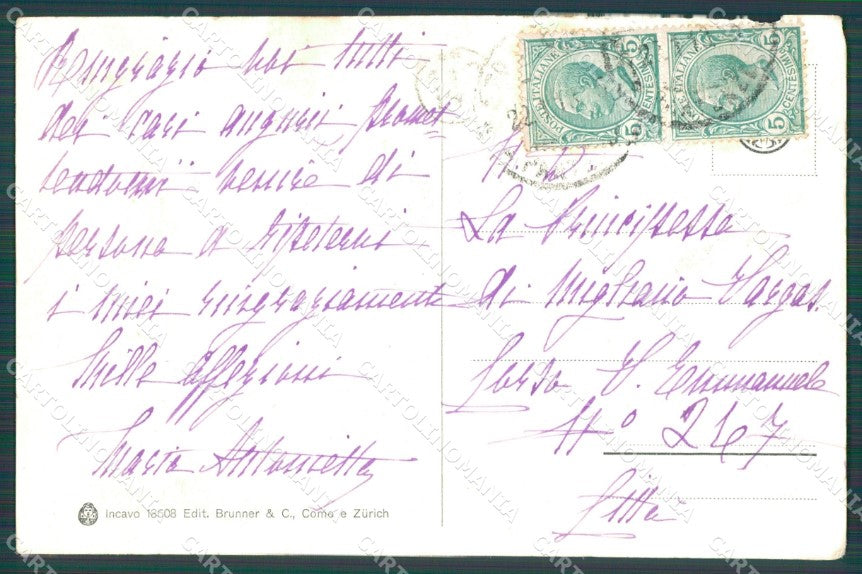 Ringrazio voi tutti
dei cari auguri, promet
tendomi venire di
persona a ripetervi
i miei ringraziamenti
Mille affezioni
Maria Antonietta
Incavo 18608 Edit. Brunner & C., Como e Zürich
POSTE ITALIANE
CENTESIMI 5
POSTE ITALIANE
CENTESIMI 5
La Principessa
di Migliano Vargas
Corso V. Emmanuele
No 247
Città
CARTOLINOMANIA